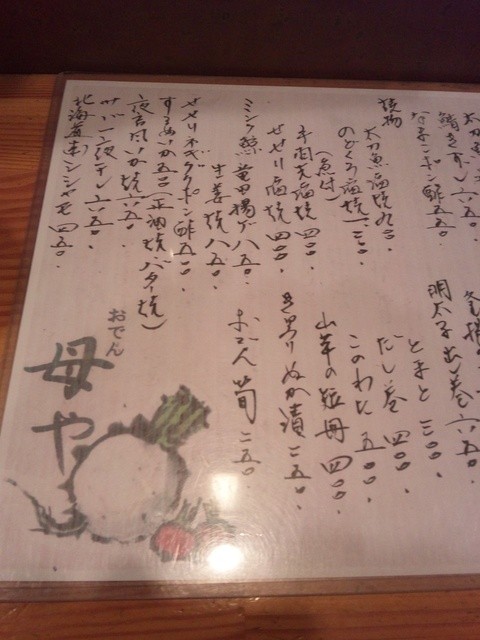 太刀魚
鱧きずし 六五〇
なまこポン酢 五五〇
焼物
太刀魚塩焼 九五〇
のどぐろ塩焼
(魚付)
手羽先塩焼 四〇〇
せせり塩焼 四〇〇
ミンク鯨 竜田揚げ 八五〇
生姜焼 八五〇
せせりネギダクポン酢 五五〇
するめいか 五五〇 (正油焼 バター焼)
夜店風いか焼 六五〇
サバ一夜干し 六五〇
北海道産シシャモ 四五〇
明太子出し巻 六五〇
とまと 三〇〇
だし巻 四〇〇
このわた 五〇〇
山芋の短冊 四〇〇
きゅうりぬか漬 二五〇
おでん
筍 二五〇
おでん
母や